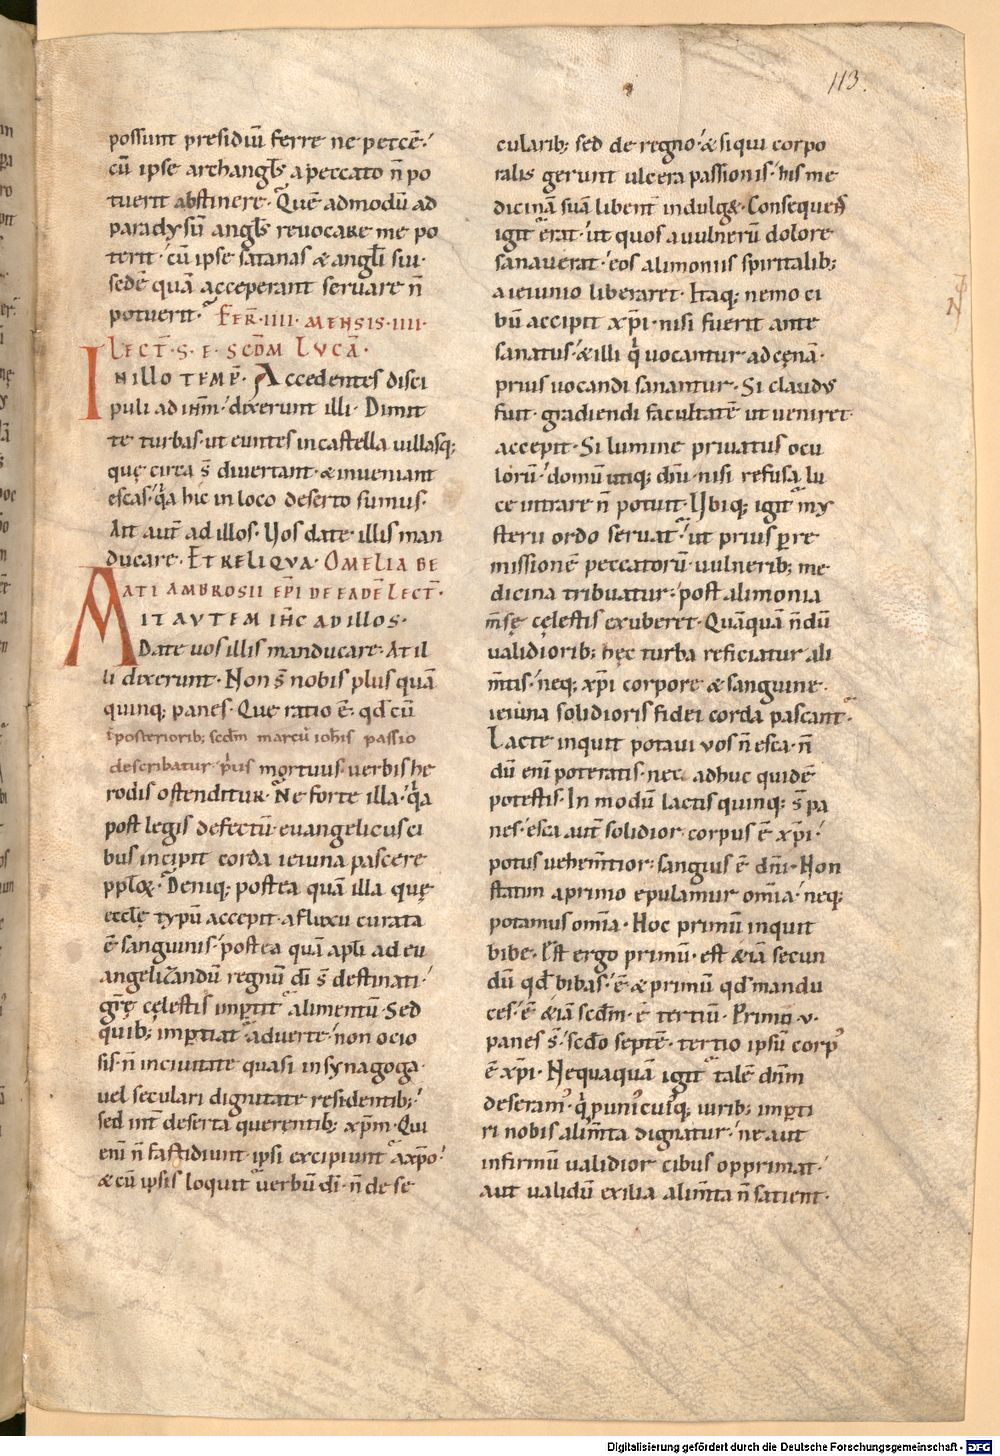 113.
possunt presidiū ferre ne peccē·
cū ipse archangl̄s a peccato n̄ po
tuerit abstinere· Quē admodū ad
paradysū angl̄s reuocare me po
terit· cū ipse satanas & angl̄i sui·
sedē quā acceperant seruare n̄
potuerit· FER̄·IIII·MENSIS·IIII·
LECT̄·S·E·SCD̄M LVCĀ·
IN ILLO TEMP̄· Accedentes disci
puli ad ih̄m· dixerunt illi· Dimit
te turbas· ut euntes in castella uillasq;
quę circa s̄ diuertant· & inueniant
escas· q̄a hic in loco deserto sumus·
Ait aut̄ ad illos· Uos date illis man
ducare· ET RELIQVA· OMELIA BE
ATI AMBROSII EP̄I DE EADĒ LECT̄·
AIT AVTEM IH̄C AD ILLOS·
Date uos illis manducare· At il
li dixerunt· Non s̄ nobis plus quā
quinq; panes· Que ratio ē· qd̄ cū
i posteriorib; scd̄m marcū ioh̄is passio
describatur p̄us mortuus uerbis he
rodis ostenditur· Ne forte illa· q̄a
post legis defectū· euangelicus ci
bus incipit corda ieiuna pascere
Deniq; postea quā illa quę
eccłę typū accepit· a fluxu curata
ē sanguinis· postea quā apłi ad eu
angelizandū regnū dī s̄ destinati·
gr̄ę cęlestis imptit alimentū· Sed
quib; imptiat aduerte· non ocio
sis· n̄ in ciuitate quasi in synagoga·
uel seculari dignitate residentib;·
sed int̄ deserta querentib; xp̄m· Qui
eni n̄ fastidiunt· ipsi excipiunt a xp̄o·
& cū ipsis loquit uerbū dī· n̄ de se
cularib; sed de regno· & si qui corpo
ralis gerunt ulcera passionis· his me
dicinā suā libent̄ indulg&· Consequens
igit erat· ut quos a uulnerū dolore
sanauerat· eos alimoniis spiritalib;
a ieiunio liberaret· Itaq; nemo ci
bū accipit xp̄i· nisi fuerit ante
sanatus· & illi q̄ uocantur ad cęnā·
prius uocandi sanantur· Si claudus
fuit· gradiendi facultatē ut ueniret·
accepit· Si lumine priuatus ocu
lorū· domū utiq; dn̄i· nisi refusa lu
ce intrare n̄ potuit· Ubiq; igit my
sterii ordo seruat· ut prius p re
missionē peccatorū uulnerib; me
dicina tribuatur· post alimonia
m̄sę cęlestis exuberet· Quāquā n̄dū
ualidiorib; hęc turba reficiatur ali
m̄tis· neq; xp̄i corpore & sanguine·
ieiuna solidioris fidei corda pascant·
Lacte inquit potaui uos n̄ esca· n̄
dū eni poteratis· nec adhuc quidē
potestis· In modū lactis quinq; s̄ pa
nes· esca aut̄ solidior corpus ē xp̄i·
potus uehem̄tior· sanguis ē dn̄i· Non
statim a primo epulamur om̄ia· neq;
potamus om̄ia· Hoc primū inquit
bibe· Est ergo primū· est &iā secun
dū qd̄ bibas· ē & primū qd̄ mandu
ces· ē &iā scd̄m· ē tertiū· Primo ·v·
panes s̄· scd̄o septē· tertio ipsū corp᾿
ē xp̄i· Nequaquā igit talē dn̄m
deseram᾿ q̄ p uni᾿cui᾿q; uirib; impti
ri nobis alim̄ta dignatur· ne aut
infirmū ualidior cibus opprimat·
aut ualidū exilia alim̄ta n̄ satient·
Digitalisierung gefördert durch die Deutsche Forschungsgemeinschaft - DFG